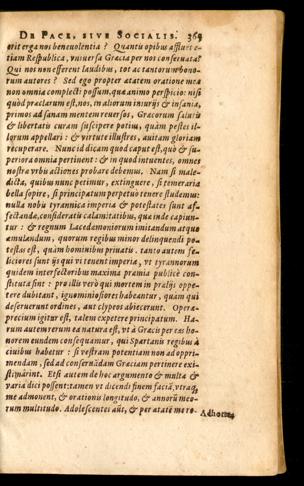 DE PACE, SIVE SOCIALIS. 369
erit erga nos beneuolentia? Quantis opibus affluet etiam
Respublica, vniuersa Græcia per nos conseruata?
Qui nos non efferent laudibus, tot ac tantorum bonorum
autores? Sed ego propter ætatem oratione mea
non omnia complecti possum, quæ animo perspicio: nisi
quòd præclarum est, nos, in aliorum iniurijs & insania,
primos ad sanam mentem reuersos, Græcorum salutis
& libertatis curam suscipere potius, quàm pestes illorum
appellari: & virtute illustres, auitam gloriam
recuperare. Nunc id dicam quod caput est, quò & superiora
omnia pertinent: & in quod intuentes, omnes
nostræ vrbis actiones probare debemus. Nam si maledicta,
quibus nunc petimur, extinguere, si temeraria
bella sopire, si principatum perpetuò tenere studemus:
nulla nobis tyrannica imperia & potestates sunt affectandæ,
consideratis calamitatibus, quæ inde capiuntur
: & regnum Lacedæmoniorum imitandum atque
æmulandum, quorum regibus minor delinquendi potestas
est, quàm hominibus priuatis. tanto autem feliciores
sunt ijs qui vi tenent imperia, vt tyrannorum
quidem interfectoribus maxima præmia publicè constituta
sint: pro illis verò qui mortem in prælijs oppetere
dubitant, ignominiosiores habeantur, quam qui
deseruerunt ordines, aut clypeos abiecerunt. Operæprecium
igitur est, talem expetere principatum. Harum
autem rerum ea natura est, vt à Græcis per eas honorem
eundem consequamur, qui Spartanis regibus à
ciuibus habetur: si vestram potentiam non ad opprimendam,
sed ad conseruãdam Græciam pertinere existimârint.
Etsi autem de hoc argumento & multa &
varia dici possent: tamen vt dicendi finem faciã, vtraq;
me admonent, & orationis longitudo, & annorũ meorum
multitudo. Adolescentes aũt, & per ætatẽ me ro-
Adhorta-